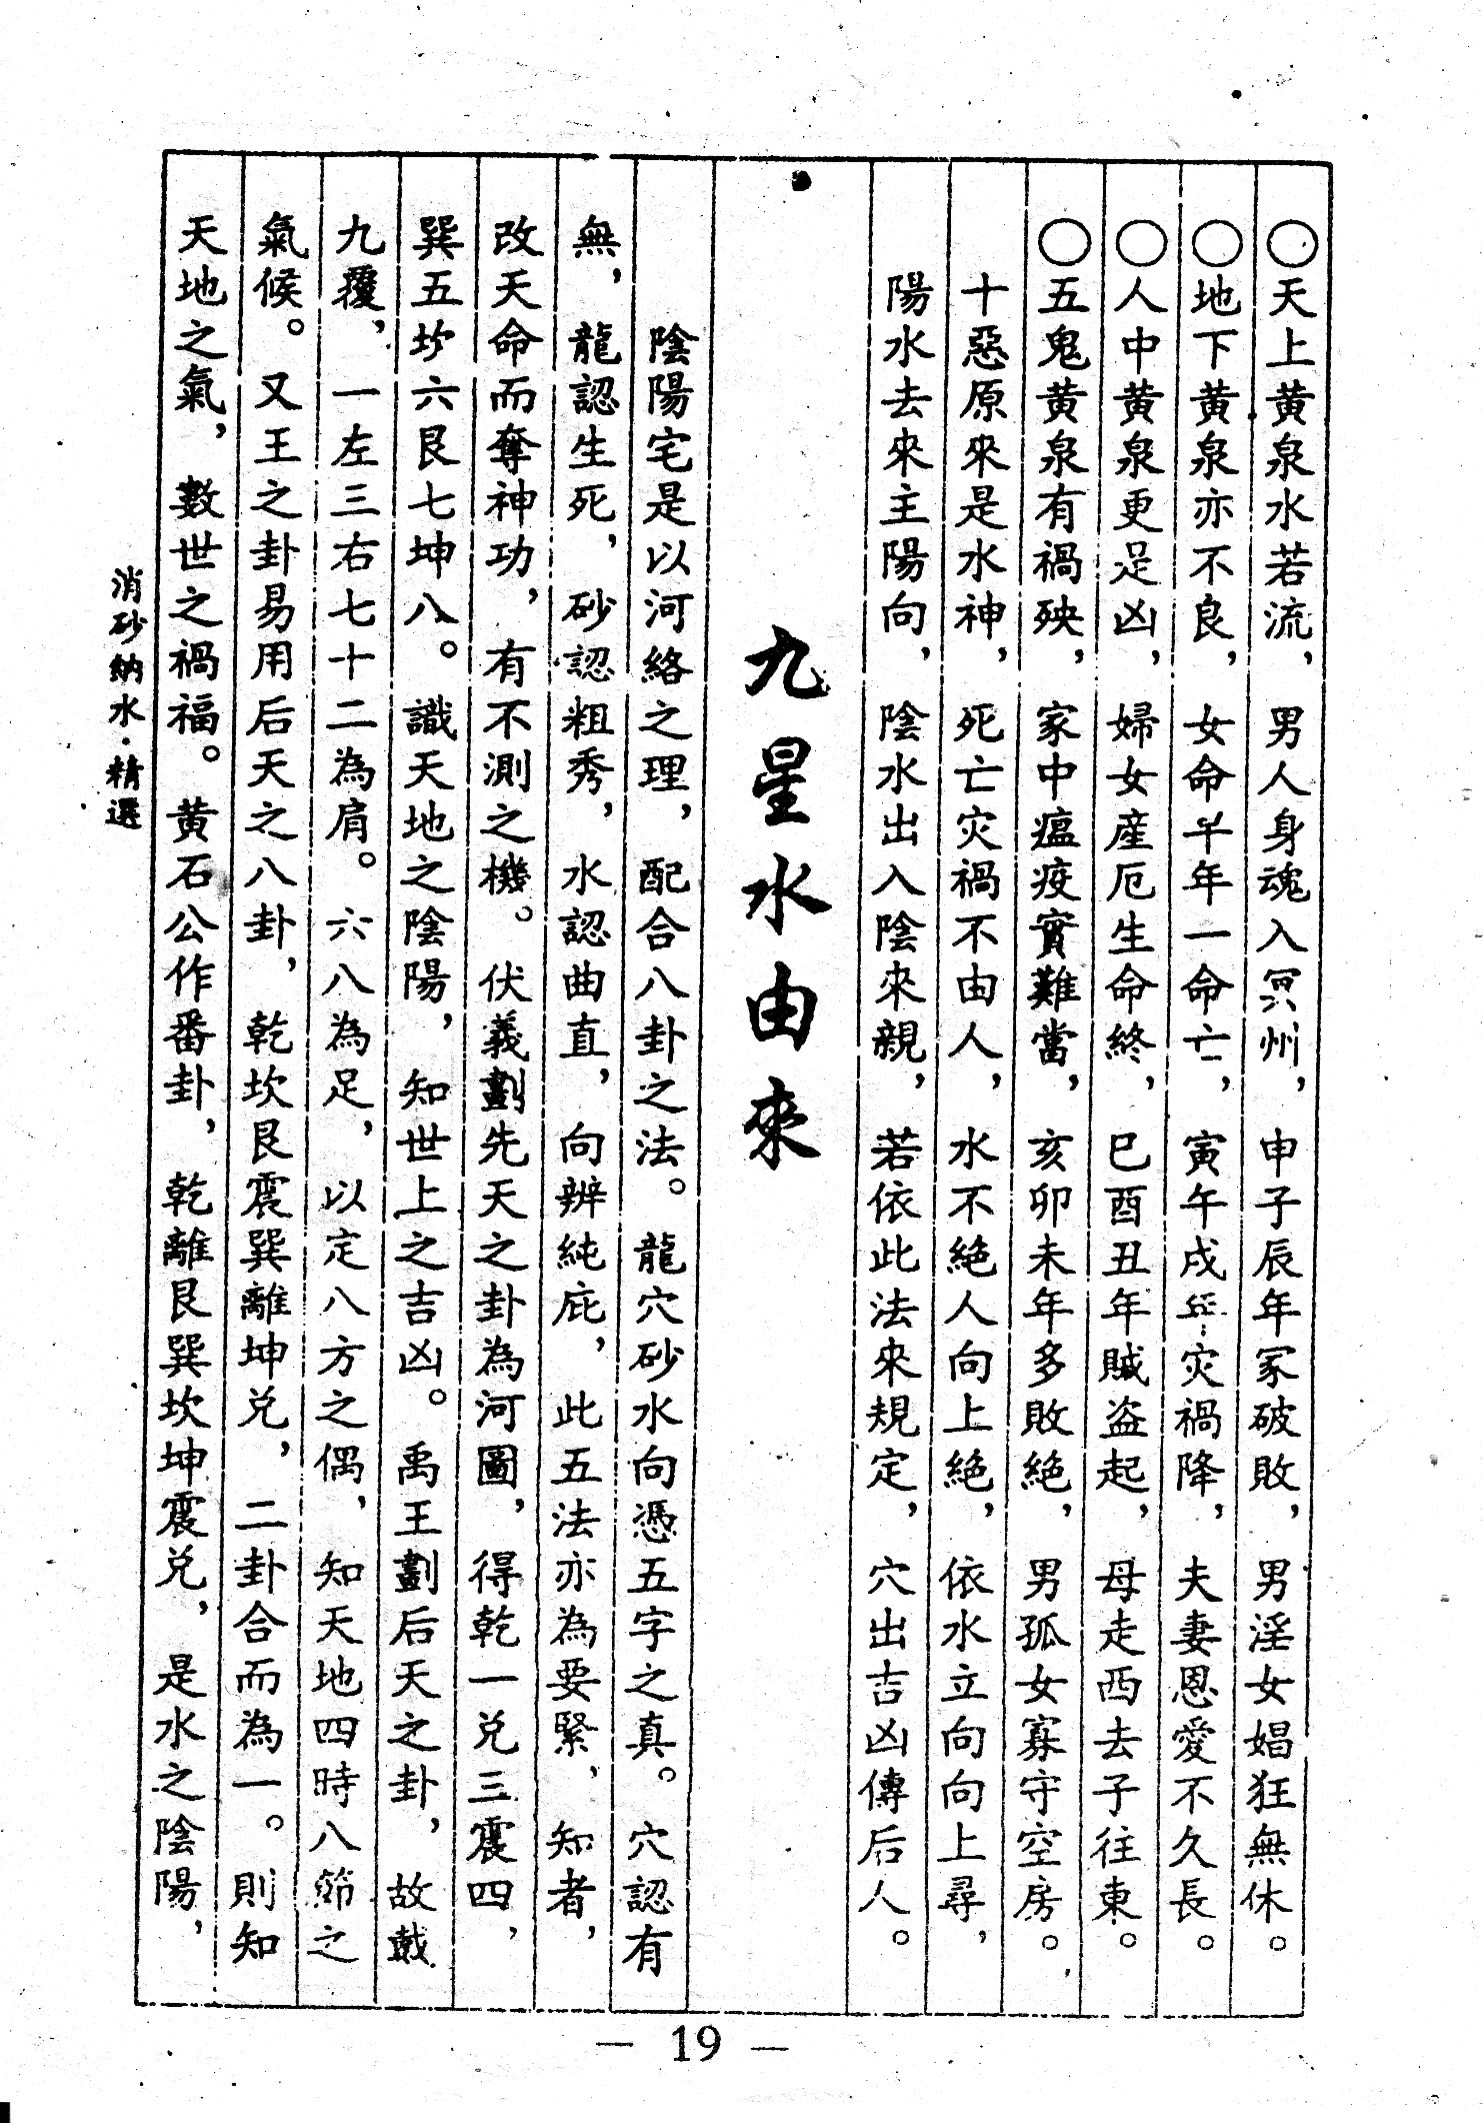 ○天上黄泉水若流，男人身魂入冥州，申子辰年冢破敗，男淫女娼狂無休。
○地下黄泉亦不良，女命午年一命亡，寅午戌年灾禍降，夫妻恩愛不久長。
○人中黄泉更足凶，婦女産厄生命終，巳酉丑年賊盗起，母走西去子往東。
○五鬼黄泉有禍殃，家中瘟疫實難當，亥卯未年多敗絶，男孤女寡守空房。
十惡原來是水神，死亡灾禍不由人，水不絶人向上絶，依水立向向上尋，
陽水去來主陽向，陰水出入陰來親，若依此法來規定，穴出吉凶傳后人。
九星水由來
陰陽宅是以河絡之理，配合八卦之法。龍穴砂水向憑五字之真。穴認有
無，龍認生死，砂認粗秀，水認曲直，向辨純庇，此五法亦為要緊，知者，
改天命而奪神功，有不測之機。伏義劃先天之卦為河圖，得乾一兑三震四，
巽五坎六艮七坤八。識天地之陰陽，知世上之吉凶。禹王劃后天之卦，故戴
九覆，一左三右七十二為肩。六八為足，以定八方之偶，知天地四時八節之
氣候。又王之卦易用后天之八卦，乾坎艮震巽離坤兑，二卦合而為一。則知
天地之氣，數世之禍福。黄石公作番卦，乾離艮巽坎坤震兑，是水之陰陽，
消砂納水·精選
— 19 —